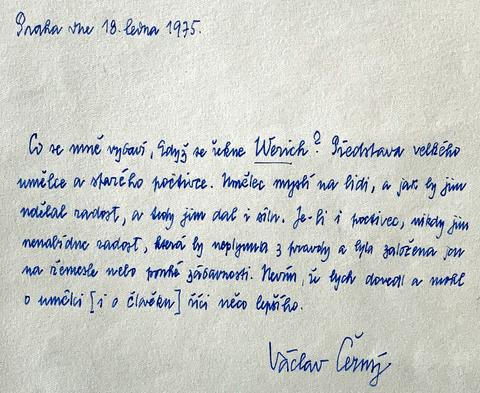 Praha dne 18. ledna 1975.
Co se mně vybaví, když se řekne Werich? Představa velkého
umělce a starého poctivce. Umělec myslí na lidi, a jak by jim
udělal radost, a tedy jim dal i sílu. Je-li i poctivec, nikdy jim
nenabídne radost, která by neplynula z pravdy a byla založena jen
na řemesle nebo pouhé zábavnosti. Nevím, že bych dovedl a mohl
o umělci [i o člověku] říci něco lepšího.
Václav Černý